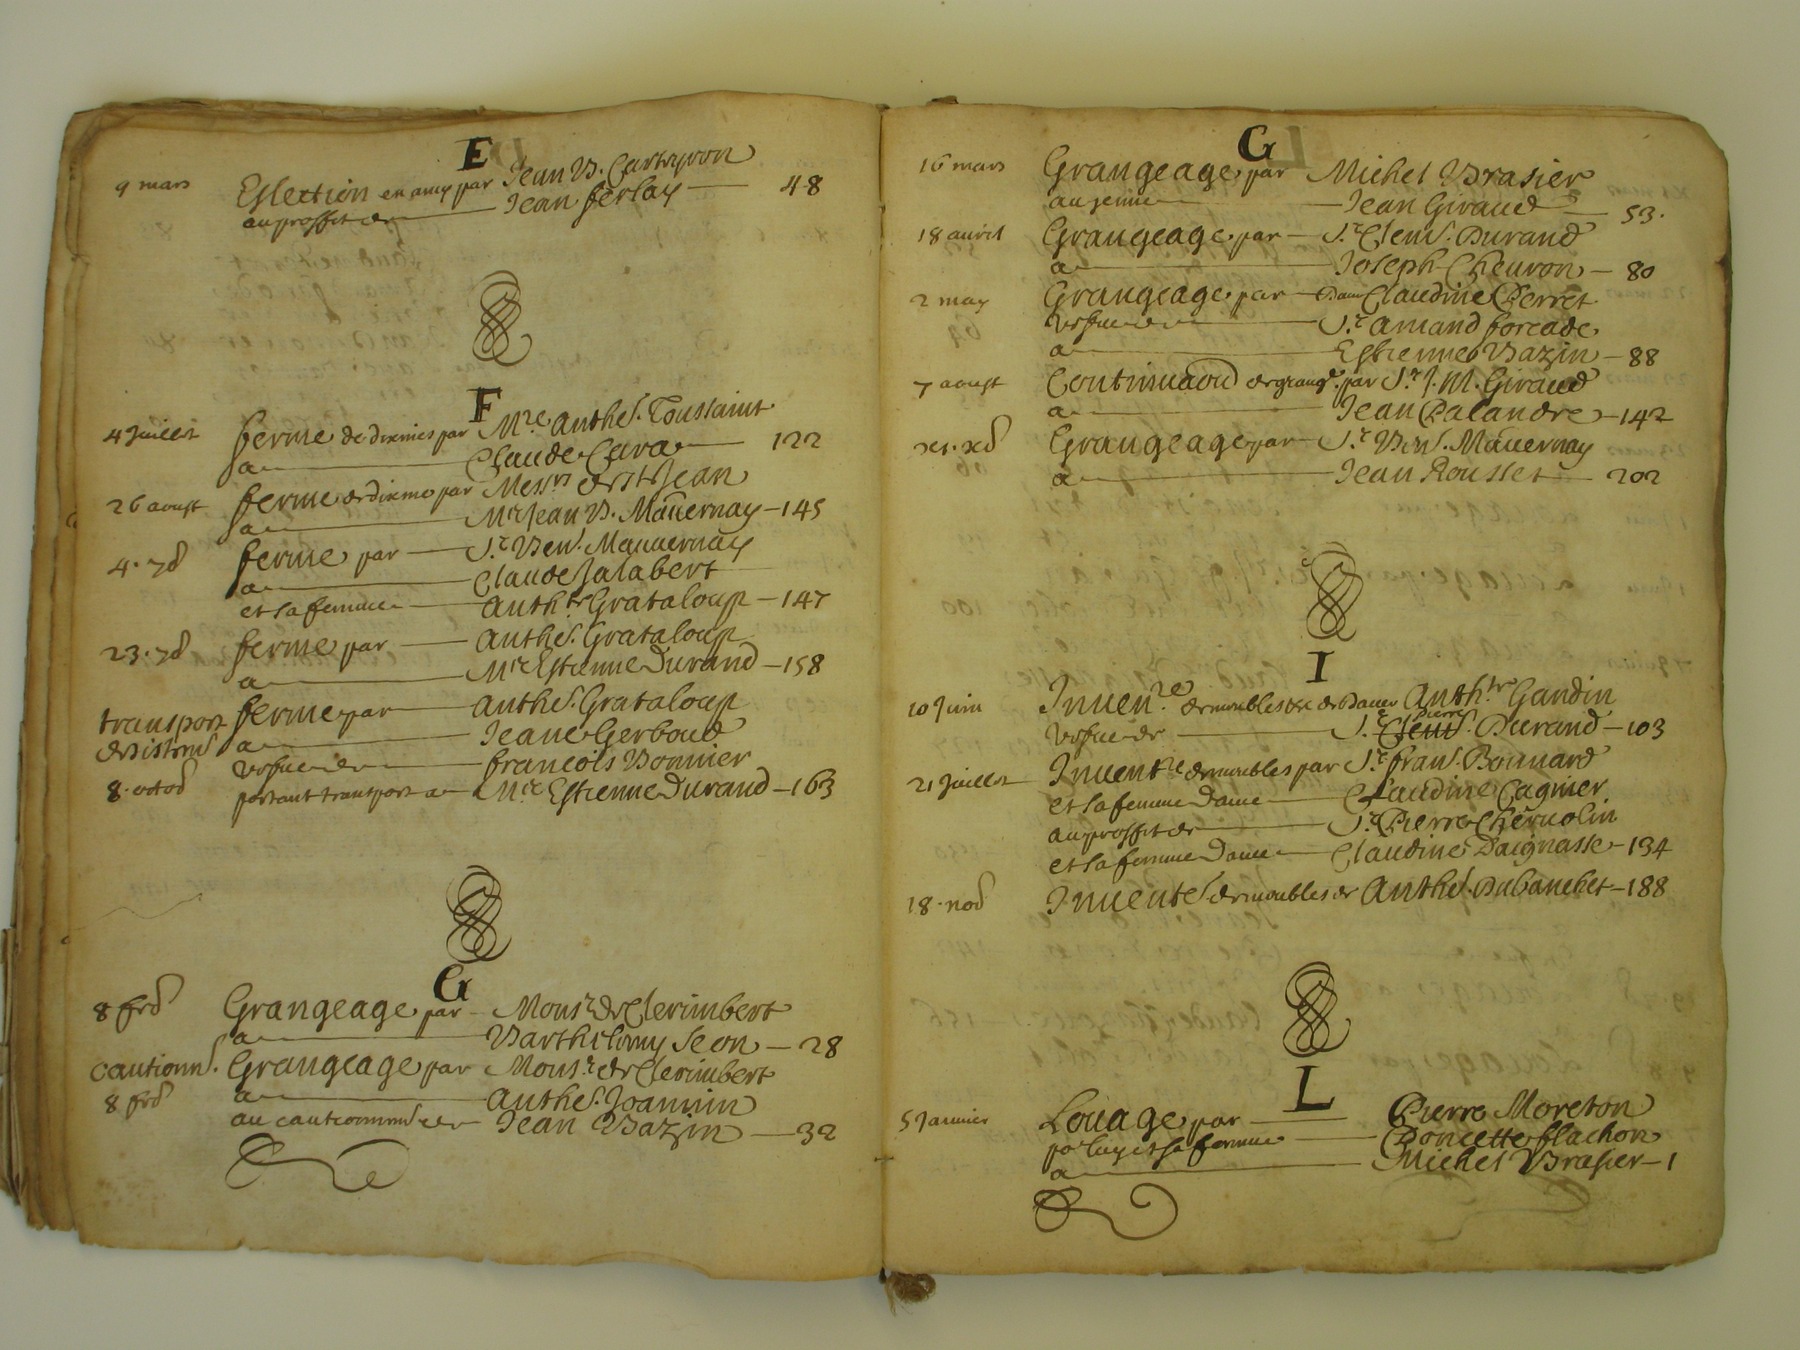 E
9 mars Eslection en amy par Jean B. Carteyron
au proffit de Jean ferlay 48
F
4 Juillet ferme de dixmes par Mre. Anthe. Toussaint
a Claude Cara 122
26 aoust ferme de dixme par Messrs de St Jean
a Mre Jean B. Mauvernay 145
4. 7b ferme par Sr. Ben. Mauvernay
a Claude Jalabert
et sa femme Anthte Grataloup 147
23. 7b ferme par Anthe. Grataloup
a Mre Estienne Durand 158
transport ferme par Anthe. Grataloup
a Jeane Gerboud
vefue de francois Bonnier
8. octob portant transport a Mre Estienne Durand 163
G
8 feb Grangeage par Monsr. de Clerimbert
a Barthelemy Seon 28
cautionnt. Grangeage par Monsr. de Clerimbert
8 feb a Anthe. Joannin
au cautionnemt de Jean Bazin 32
G
16 mars Grangeage par Michel Brasier
Jean Giraud 53.
18 avril Grangeage par Sr. Clem. Durand
a Joseph Cheuron 80
2 may Grangeage par Dame Claudine Perret
vefue de Sr. Amand forcade
a Estienne Bazin 88
7 aoust Continuaon de grange. par Sr. J. M. Giraud
a Jean Palandre 142
Grangeage par Sr. Ben. Mauvernay
a Jean Rousset 202
I
10 Juin Inuenre. de meubles de Dame Anthte Gandin
vefue de Sr. Pierre Durand 103
21 Juillet Inuentre de meubles par Sr. fran. Bonnard
et sa femme Dame Claudine Cagnier
au proffit de Sr. Pierre Cheruolin
et sa femme Dame Claudine Daignasse 134
18. nob Inuente. de meubles de Anthe. Dubanchet 188
L
5 Januier Loüage par Pierre Moreton
po luy et sa femme Poncette flachon
a Michel Brasier 1